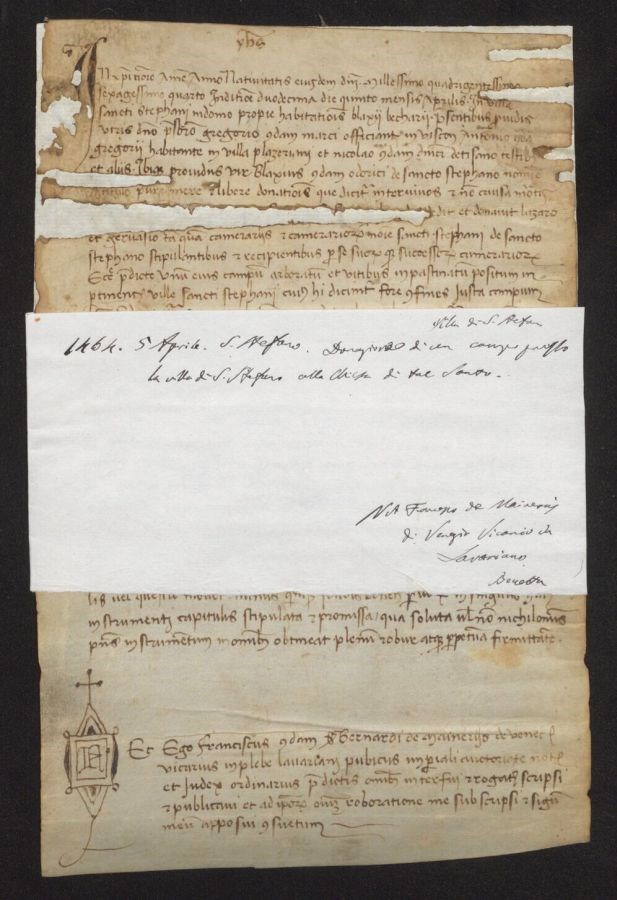 yhs
In xpi nomine Amen Anno Nativitatis eiusdem dni Millessimo quadrigentessimo
sexagessimo quarto Inditione duodecima die quinto mensis Aprilis. In villa
sancti stephani in domo proprie habitationis blaxii becharii. psentibus puidis
viris dno psbro gregorio qdam marci officiante in viscon Antonio qdam
gregorii habitante in villa plazeriani et nicolao qdam dnici de tisano testibus
et aliis. Ibiq providus vir Blaxius qdam odorici de sancto stephano nomine
pure mere et libere donationis que dicitur inter vivos et non causa mortis
dedit et donavit lazaro
et gervasio tanqua camerariis et camerariorum noie sancti stephani de sancto
stephano stipulantibus et recipientibus p se suorumq successorum camerariorum
Ecce pdicte Unum eius campum arboratum et vitibus inpastinatum positum in
ptinentiis ville sancti stephani cuius hi dicuntur fore confines Iuxta
villa di S. Stefano
1464. 5 Aprile. S. Stefano. Donazione di un campo presso
la villa di S. Stefano alla Chiesa di tal Santo.
Not Franco de Maineriis
di Venzone Vicario di
Lavariano
Beretta
instrumenti capitulis stipulata et promissa, qua soluta vel non nichilominus
pns instrumentum in omnibus obtineat plenum robur atqz perpetua firmitate.
Et Ego Franciscus qdam s Bernardi de Maineriis de venec
vicarius in plebe lavariani publicus imperiali auctoritate not
et Judex ordinarius pdictis omnibus interfui et rogatus scripsi
et publicavi et ad ipsorum omnium roboratione me subscripsi et signum
meum apposui consuetum